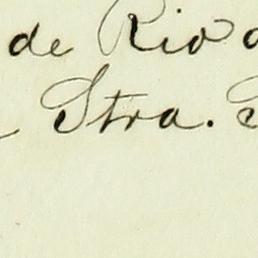 de Rio
Stra.